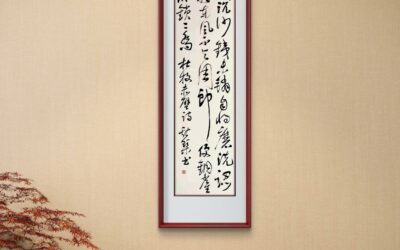 沉沙鐵未銷自將磨洗認
東風不与周郎便銅雀
鎖二喬 杜牧赤壁詩 書